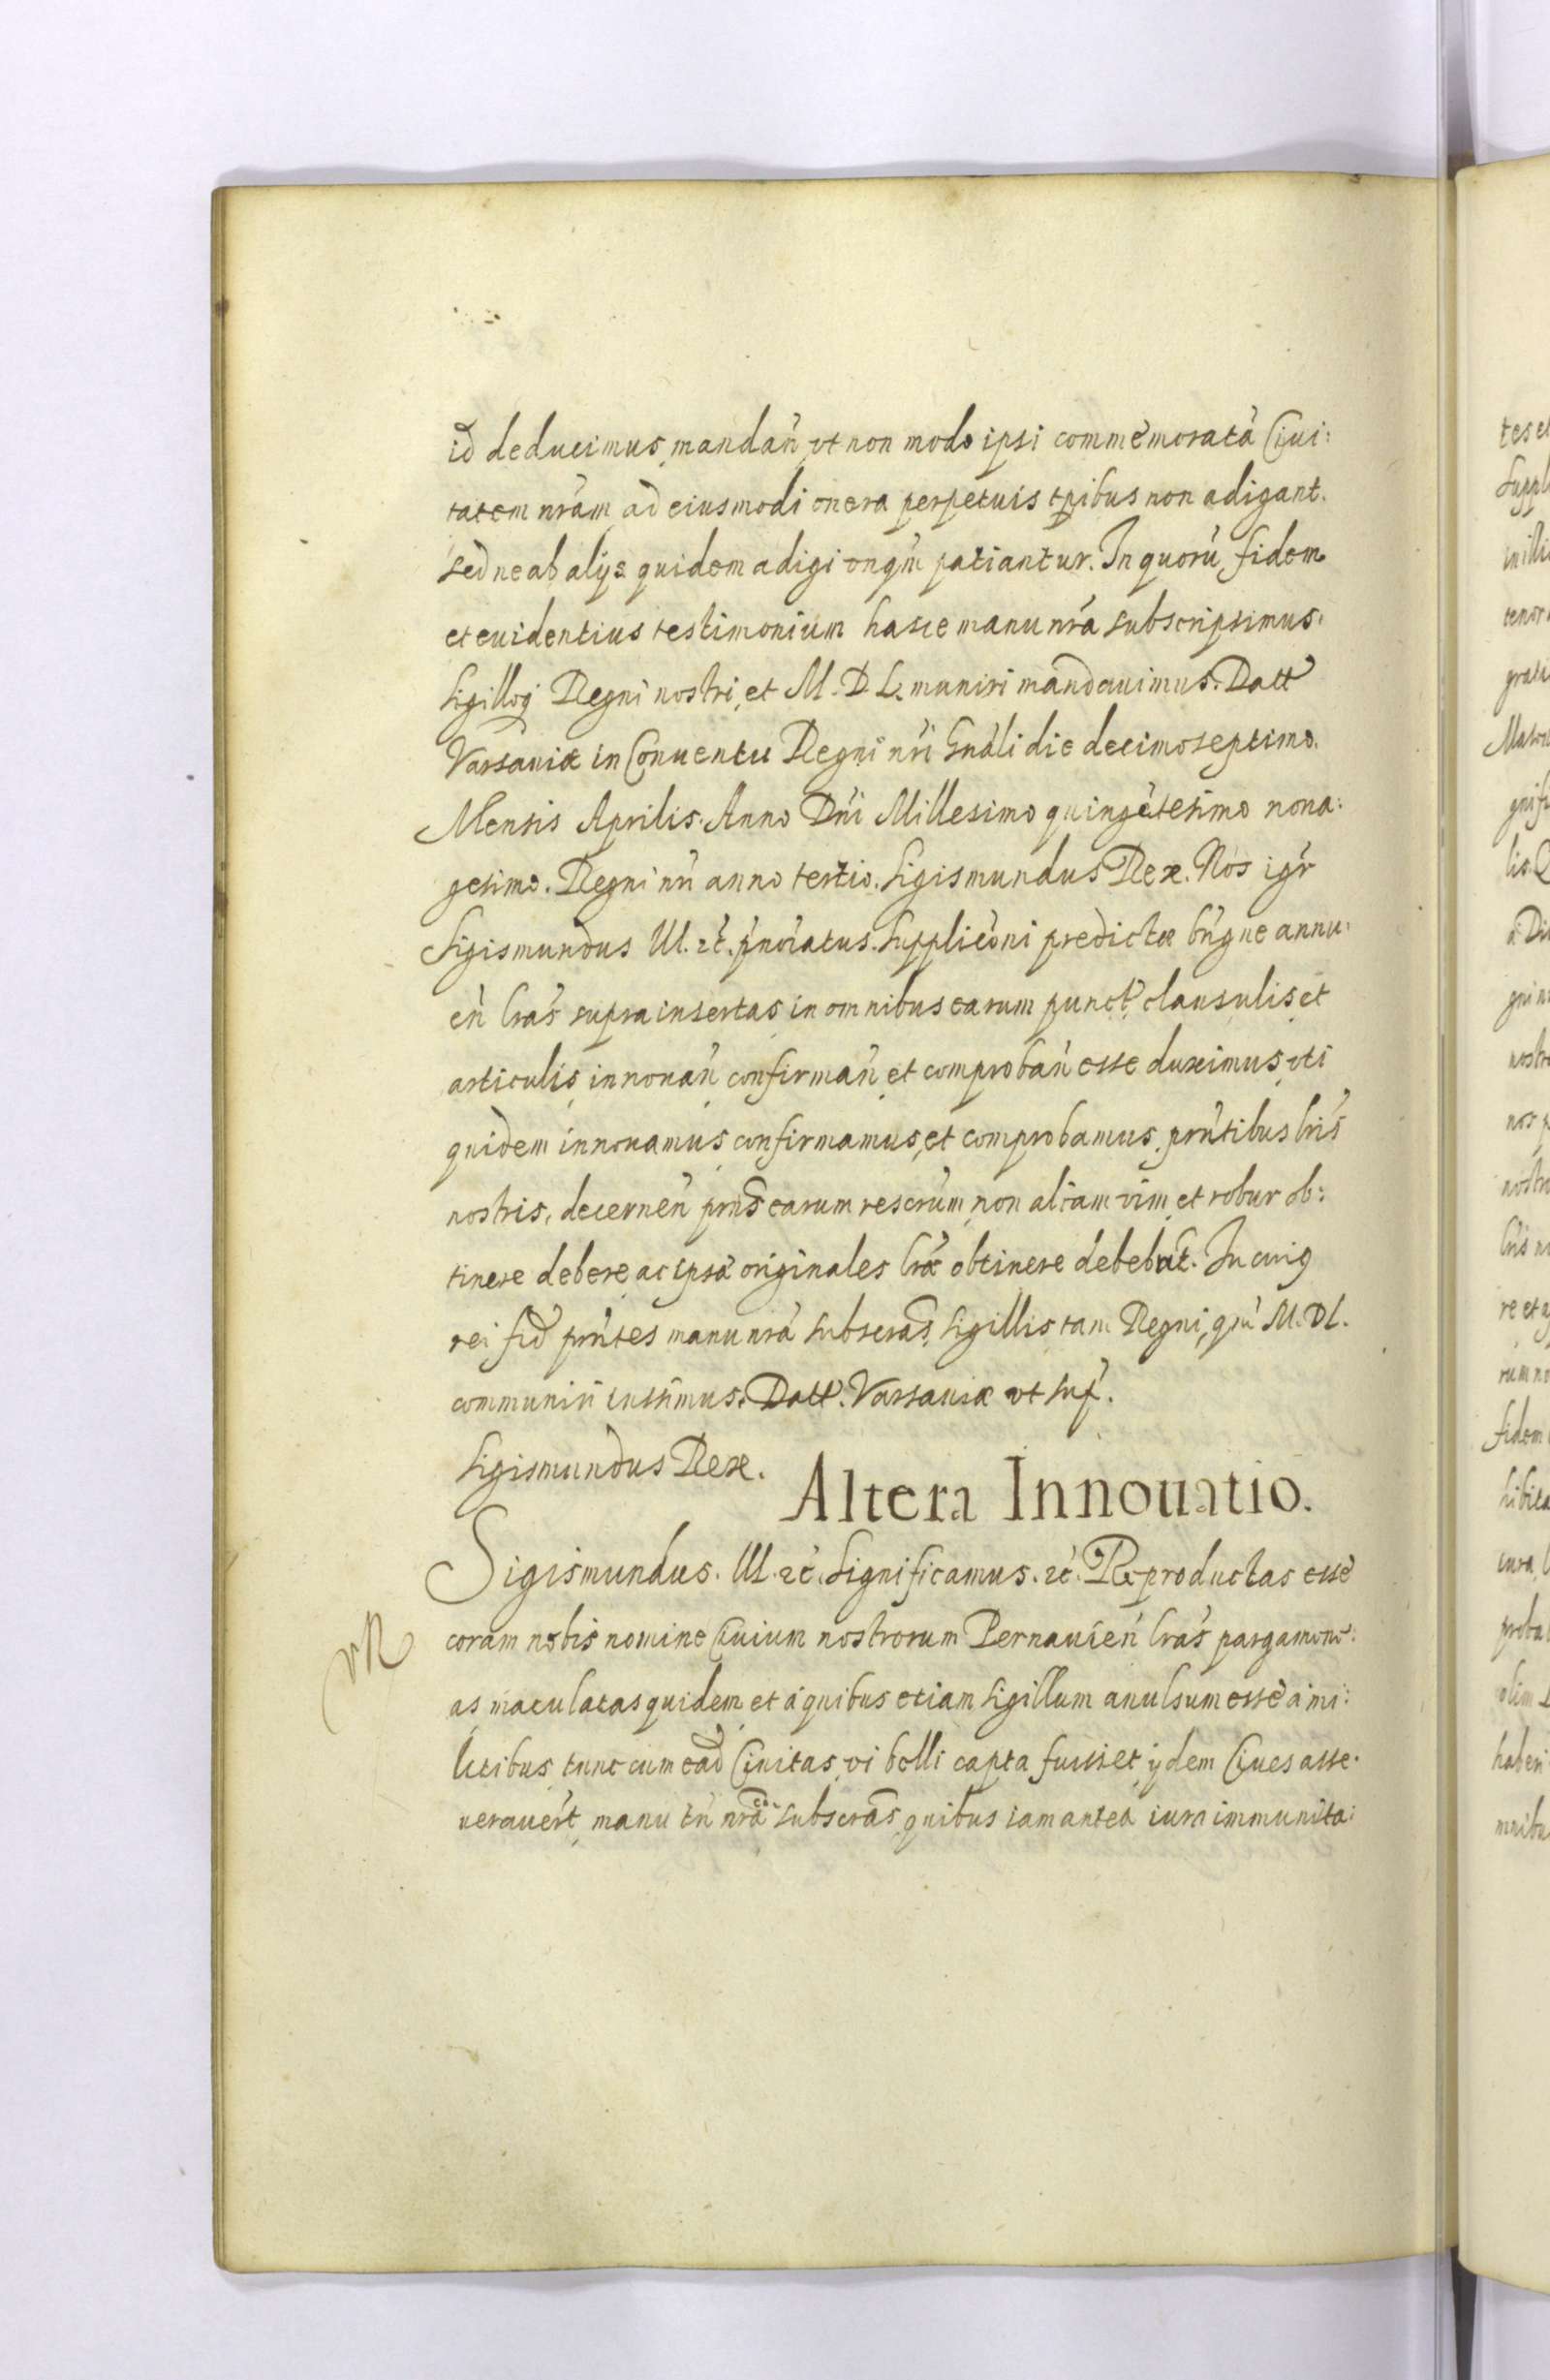 id deducimus, mandan̄, vt non modo ipsi commemoratā Ciui:
tatem nr̄am, ad eiusmodi onera perpetuis tp̄ibus non adigant.
sed ne ab alijs quidem adigi vnqm̄ patiantur. In quorū fidem
et euidentius testimonium hasce manu nr̄a subscripsimus.
Sigilloq́ Regni nostri, et M. D. L. muniri mandauimus. Datt
Varsauiæ in Conuentu Regni nr̄i Gnāli die decimoseptimo.
Mensis Aprilis. Anno Dn̄i Millesimo quingētesimo nona:
gesimo. Regni nr̄i anno tertio. Sigismundus Rex. Nos igr̄
Sigismundus III. etc̄. pn̄oiatus. Supplicōni predictæ bn̄gne annu:
en̄ lrās supra insertas, in omnibus earum punct. clausulis, et
articulis, innouan̄, confirman̄, et comproban̄ esse duximus, vti
quidem innouamus, confirmamus, et comprobamus, prn̄tibus lrīs
nostris, decernen̄ prn̄s earum rescrūm, non aliam vim, et robur ob:
tinere debere, ac ipsæ originales lrǣ obtinere debebāt. In cuiꝰ
rei fid̄ prn̄tes manu nr̄a subscrās, Sigillis tam Regni, qm̄ M. D L.
communiri iussimus. Datt. Varsauiæ vt sup̄.
Sigismundus Rex.
Altera Innouatio.
Sigismundus. III. etc̄. Significamus. etc̄. Reproductas esse
coram nobis nomine Ciuium nostrorum Pernauien̄ lrās pargamene:
as maculatas quidem, et à quibus etiam Sigillum auulsum esse à mi:
litibus, tunc cum ead̄ Ciuitas, vi belli capta fuisset, ijdem Ciues asse:
uerauer̄t, manu tn̄ nr̄a subscrās, quibus iam antea iura immunita: